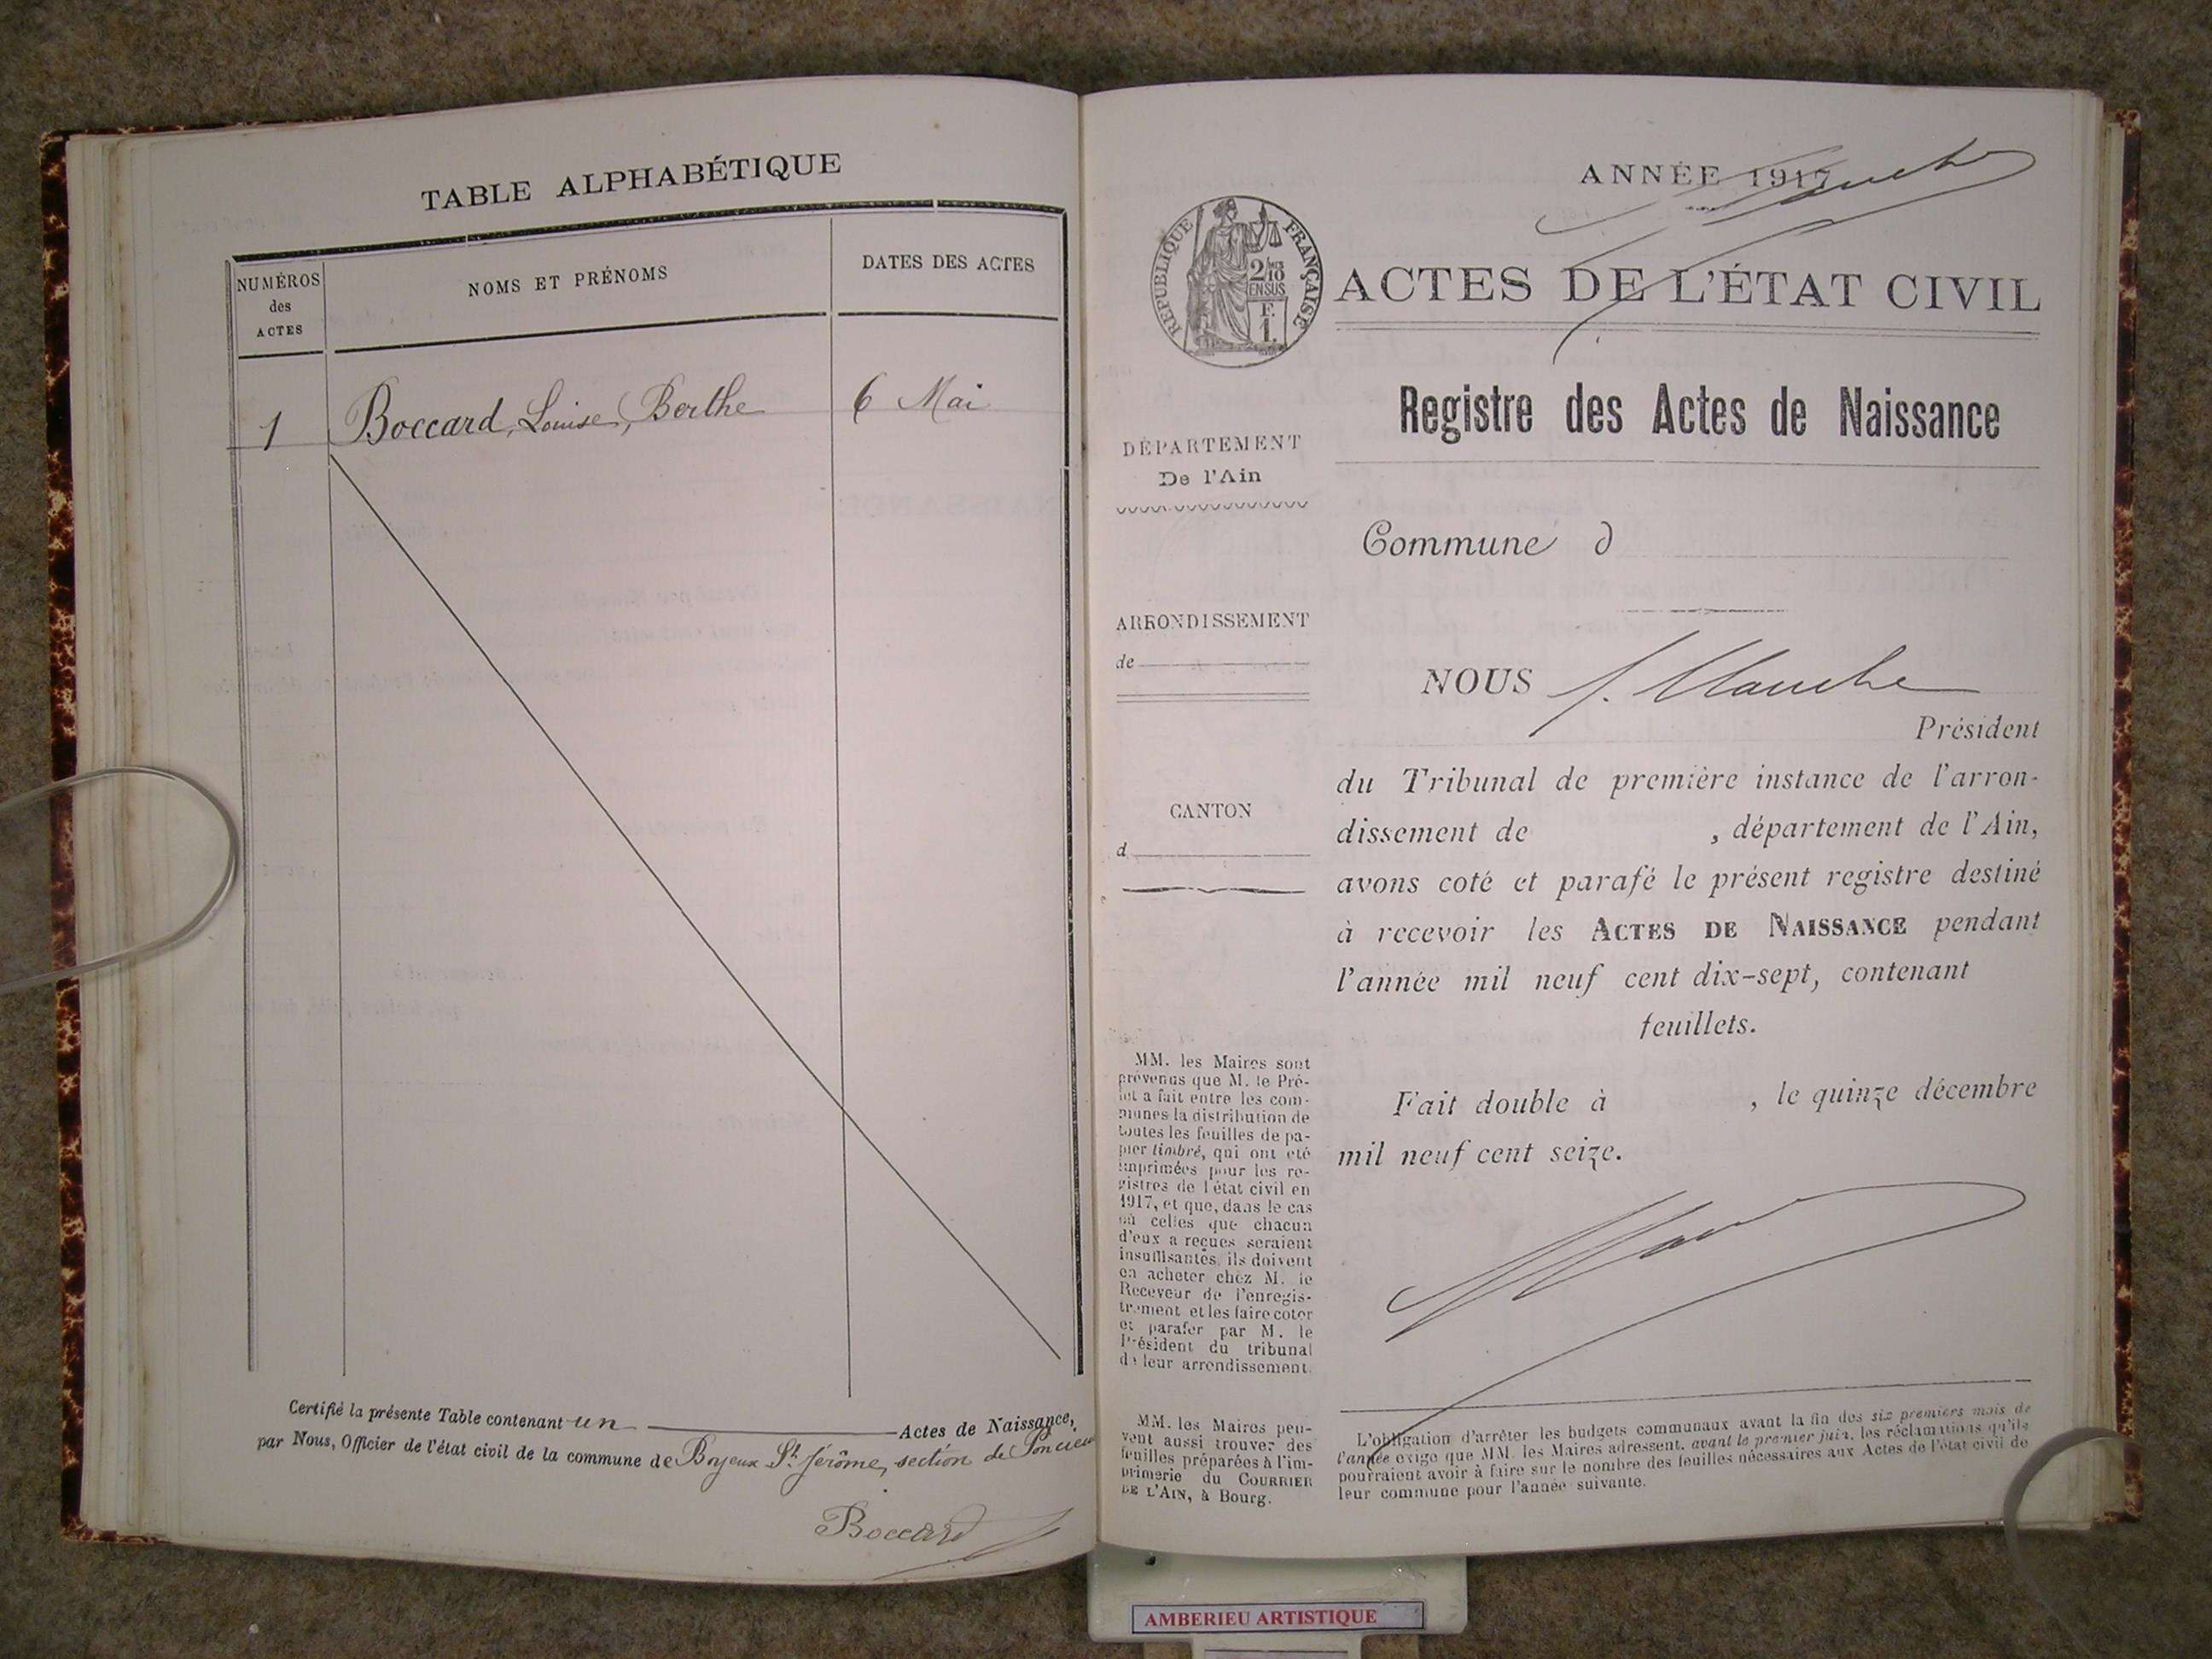 TABLE ALPHABÉTIQUE
NUMÉROS
des
ACTES
NOMS ET PRÉNOMS
DATES DES ACTES
1 Boccard, Louise, Berthe 6 Mai
Certifié la présente Table contenant un Actes de Naissance,
par Nous, Officier de l'état civil de la commune de Boyeux St Jérôme, section de
Boccard
ANNÉE 1917
RÉPUBLIQUE FRANÇAISE
2/10
EN SUS
F.
1.
ACTES DE L'ÉTAT CIVIL
Registre des Actes de Naissance
DÉPARTEMENT
De l'Ain
Commune d
ARRONDISSEMENT
de
NOUS
Président
du Tribunal de première instance de l'arron-
dissement de , département de l'Ain,
avons coté et parafé le présent registre destiné
à recevoir les ACTES DE NAISSANCE pendant
l'année mil neuf cent dix-sept, contenant
feuillets.
Fait double à , le quinze décembre
mil neuf cent seize.
CANTON
d
MM. les Maires sont
prévenus que M. le Pré-
fet a fait entre les com-
munes la distribution de
toutes les feuilles de pa-
pier timbré, qui ont été
imprimées pour les re-
gistres de l'état civil en
1917, et que, dans le cas
où celles que chacun
d'eux a reçues seraient
insuffisantes, ils doivent
en acheter chez M. le
Receveur de l'enregis-
trement et les faire coter
et parafer par M. le
Président du tribunal
de leur arrondissement.
MM. les Maires peu-
vent aussi trouver des
feuilles préparées à l'im-
primerie du COURRIER
DE L'AIN, à Bourg.
L'obligation d'arrêter les budgets communaux avant la fin des six premiers mois de
l'année exige que MM. les Maires adressent, avant le premier juin, les réclamations qu'ils
pourraient avoir à faire sur le nombre des feuilles nécessaires aux Actes de l'état civil de
leur commune pour l'année suivante.
AMBERIEU ARTISTIQUE